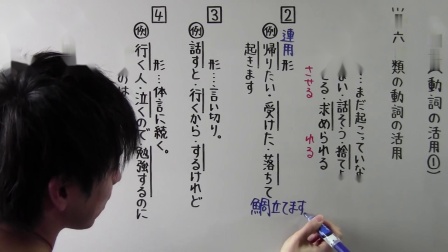 動詞の活用①)
六 類の動詞の活用
…まだ起こっていな
い・話そう 捨てよ
る・求められる
させる れる
2 運用形
例 帰りたい・受けた・落ちて
起きます
鯛立てます。
3 形…言い切り。
例 話すと・行くから・するけれど
4 形…体言に続く。
例 行く人・泣くので・勉強するのに